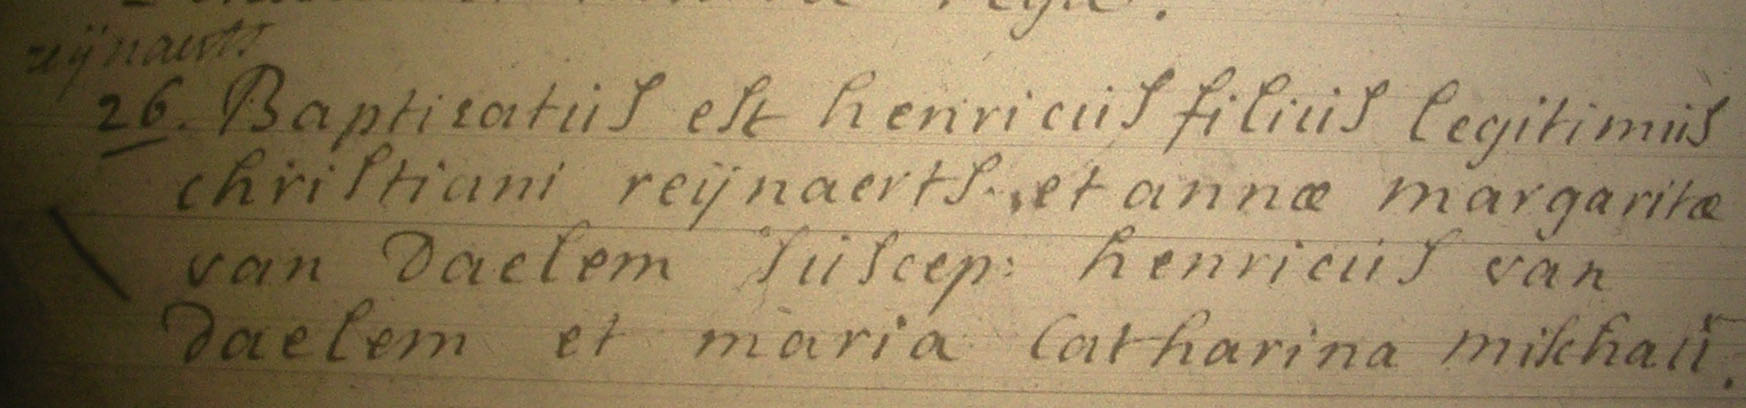 reijnaerts
26. Baptizatus est henricus filius legitimus
christiani reijnaerts. et annæ margaritæ
van Daelem suscep: henricus van
Daelem et maria Catharina